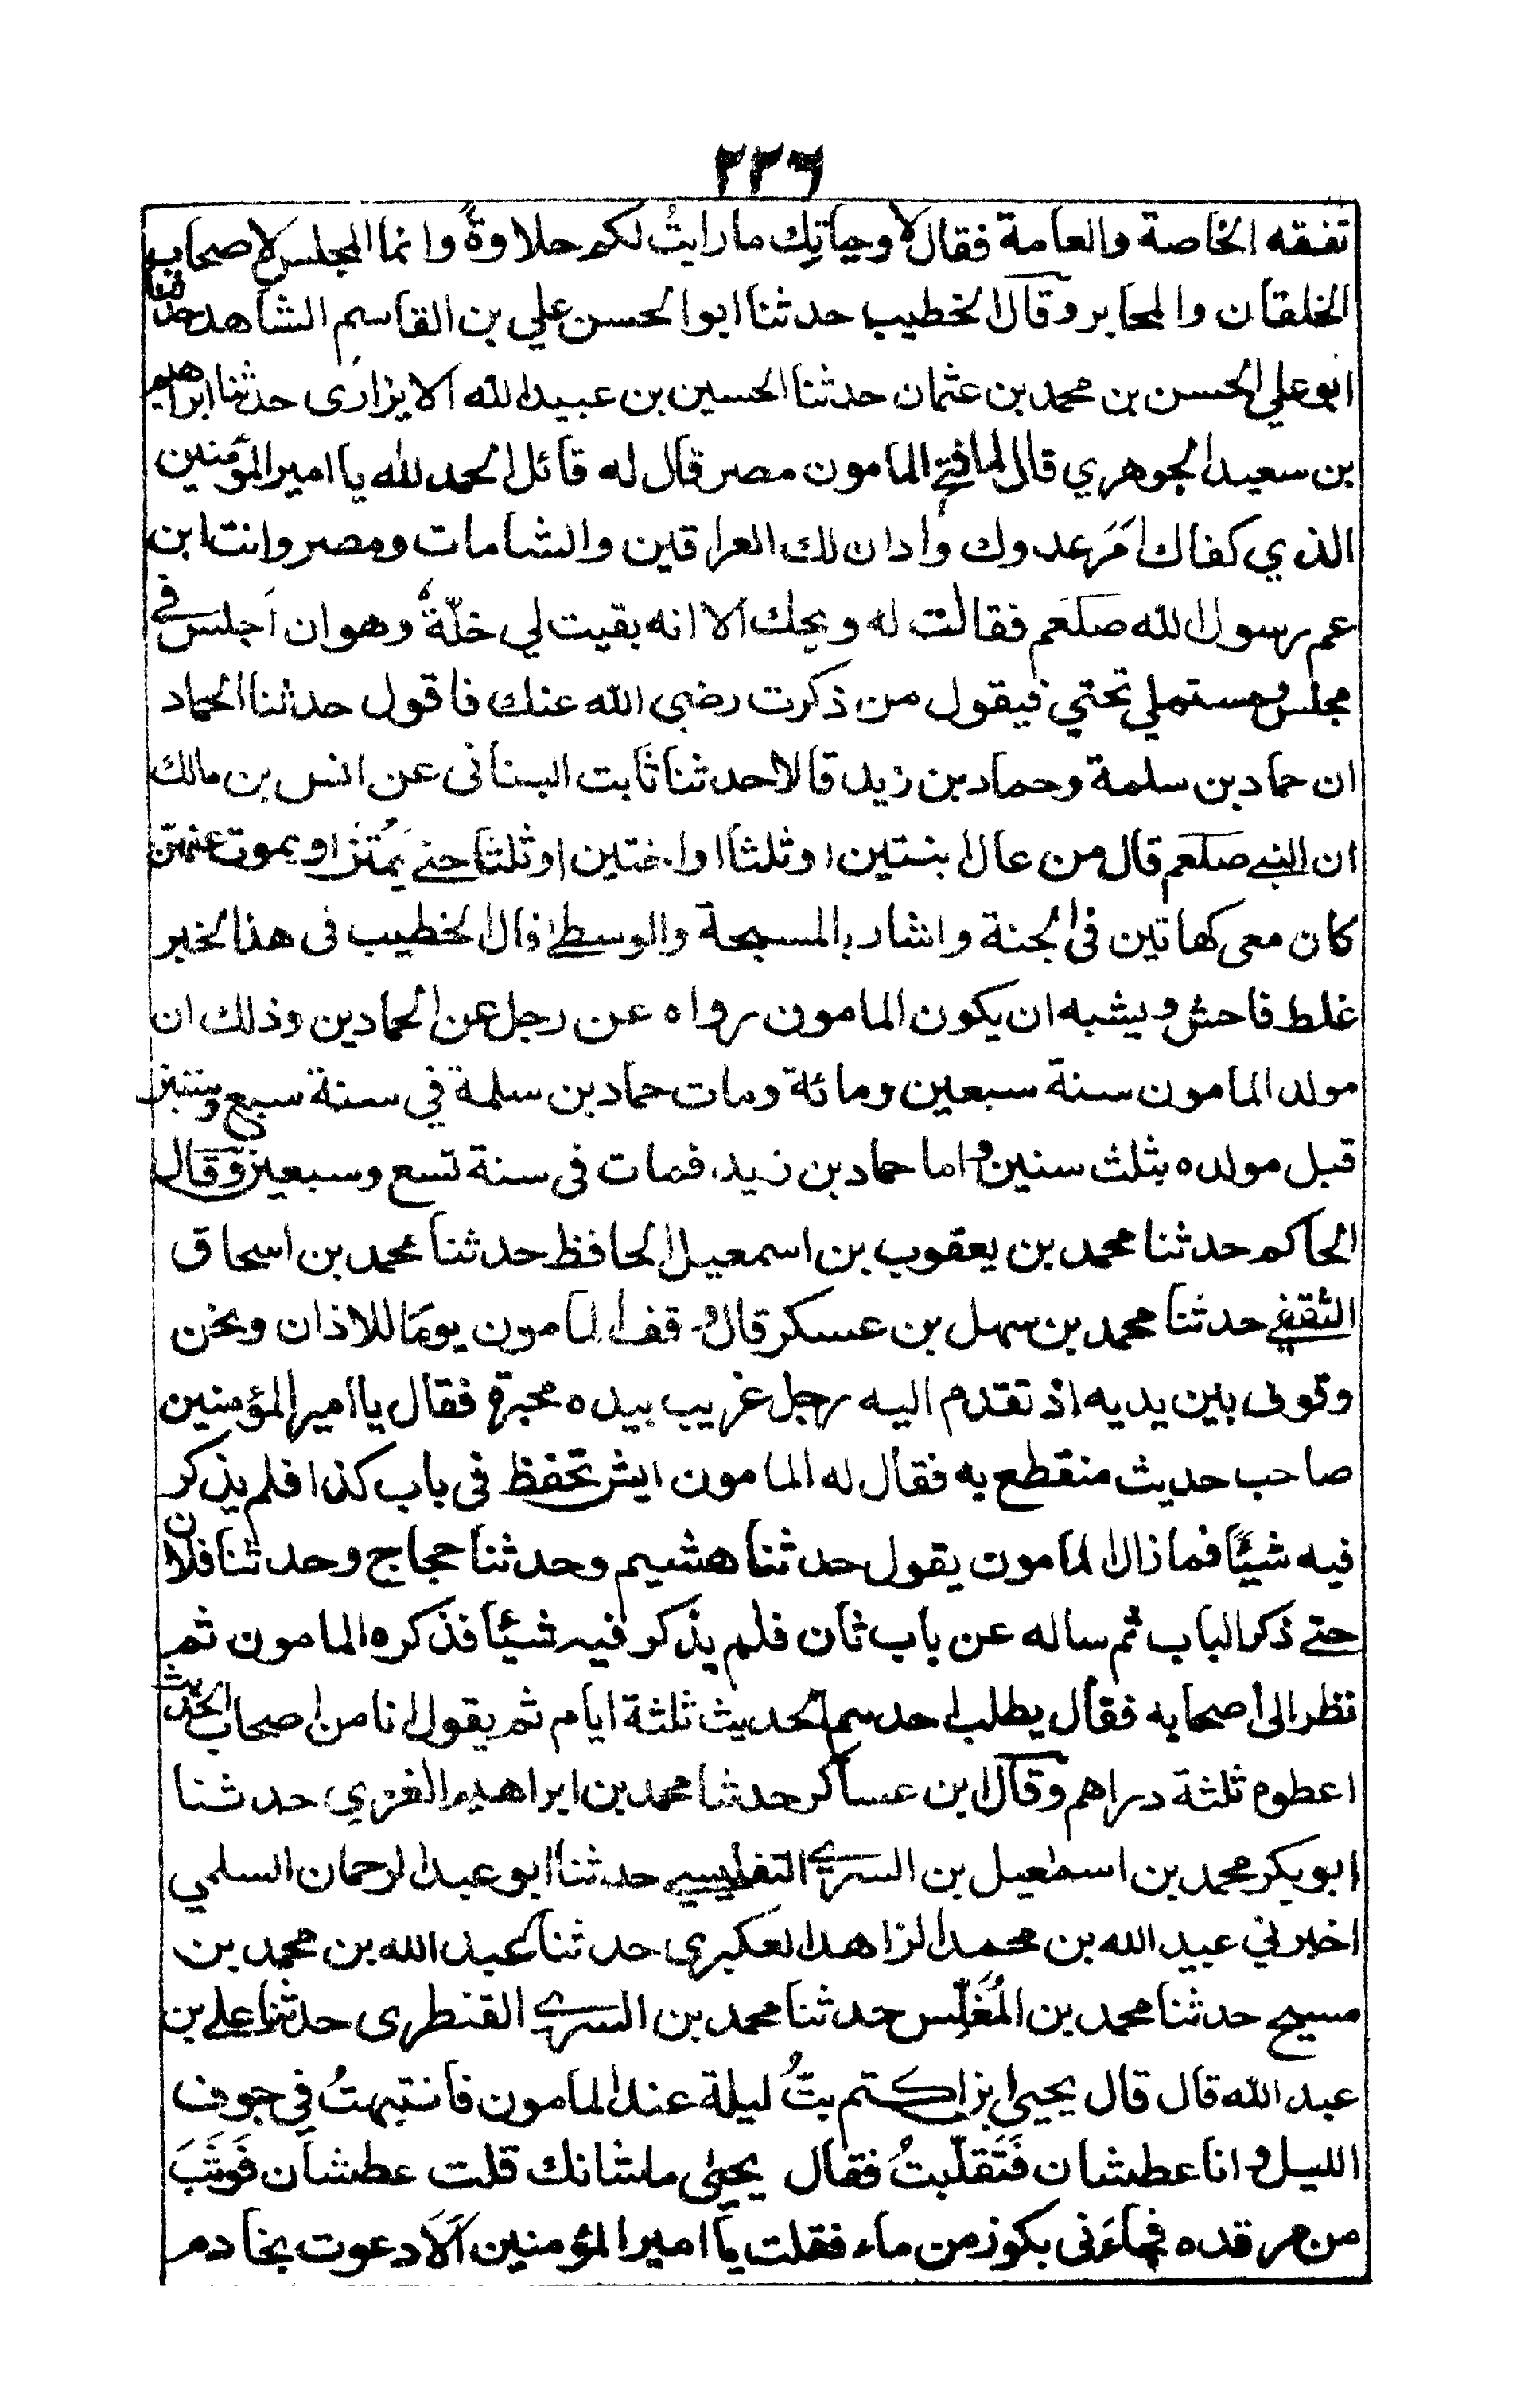 ٢٢٦
تفقه الخاصة والعامة فقال لا وحياتك ما رايتُ لكم حلاوةً وانما المجلس لاصحاب
الخلقان والمحابر وقال الخطيب حدثنا ابوالحسن علي بن القاسم الشاهد حدثنا
ابوعلي الحسن بن محمد بن عثمان حدثنا الحسين بن عبيدالله الابزارى حدثنا ابراهيم
بن سعيد الجوهري قال لما فتح المامون مصر قال له قائل الحمد لله يا اميرالمؤمنين
الذي كفاك امر عدوك وادان لك العراقين والشامات ومصر وانت ابن
عم رسول الله صلعم فقالت له ويحك الا انه بقيت لي خلّة وهو ان اجلس في
مجلس ومستملي تحتي فيقول من ذكرت رضي الله عنك فاقول حدثنا الحماد
ان حماد بن سلمة وحماد بن زيد قالا حدثنا ثابت البنانى عن انس بن مالك
ان النبي صلعم قال من عال ابنتين اوثلثا او اختين اوثلثا حتى يُمتن او يموت عنهن
كان معى كهاتين فى الجنة واشار بالمسبحة والوسطى قال الخطيب فى هذا الخبر
غلط فاحش ويشبه ان يكون المامون رواه عن رجل عن الحمادين وذلك ان
مولد المامون سنة سبعين ومائة ومات حماد بن سلمة في سنة سبع وستين
قبل مولده بثلث سنين واما حماد بن زيد فمات فى سنة تسع وسبعين وقال
الحاكم حدثنا محمد بن يعقوب بن اسمعيل الحافظ حدثنا محمد بن اسحاق
الثقفي حدثنا محمد بن سهل بن عسكر قال وقف المامون يوما للاذان ونحن
وقوف بين يديه اذ تقدم اليه رجل غريب بيده محبرة فقال يا اميرالمؤمنين
صاحب حديث منقطع به فقال له المامون ايش تحفظ فى باب كذا فلم يذكر
فيه شيئا فما زال المامون يقول حدثنا هشيم وحدثنا حجاج وحدثنا فلان
حتى ذكر الباب ثم ساله عن باب ثان فلم يذكر فيه شيئا فذكره المامون ثم
نظر الى اصحابه فقال يطلب احدهم الحديث ثلثة ايام ثم يقول انا من اصحاب الحديث
اعطوه ثلثة دراهم وقال ابن عساكر حدثنا محمد بن ابراهيم الغزي حدثنا
ابوبكر محمد بن اسمعيل بن السري التفليسي حدثنا ابوعبد الرحمان السلمي
اخبرني عبيد الله بن محمد الزاهد العكبرى حدثنا عبد الله بن محمد بن
مسيح حدثنا محمد بن المُغَلِّس حدثنا محمد بن السري القنطرى حدثنا علي بن
عبد الله قال قال يحيى ابن اكتم بتُّ ليلة عند المامون فانتبهتُ في جوف
الليل وانا عطشان فَتَقَلّبتُ فقال يحيى ما شانك قلت عطشان فَوَثَبَ
من مرقده فجاءنى بكوز من ماء فقلت يا اميرالمؤمنين اَلَا دعوت بخادم